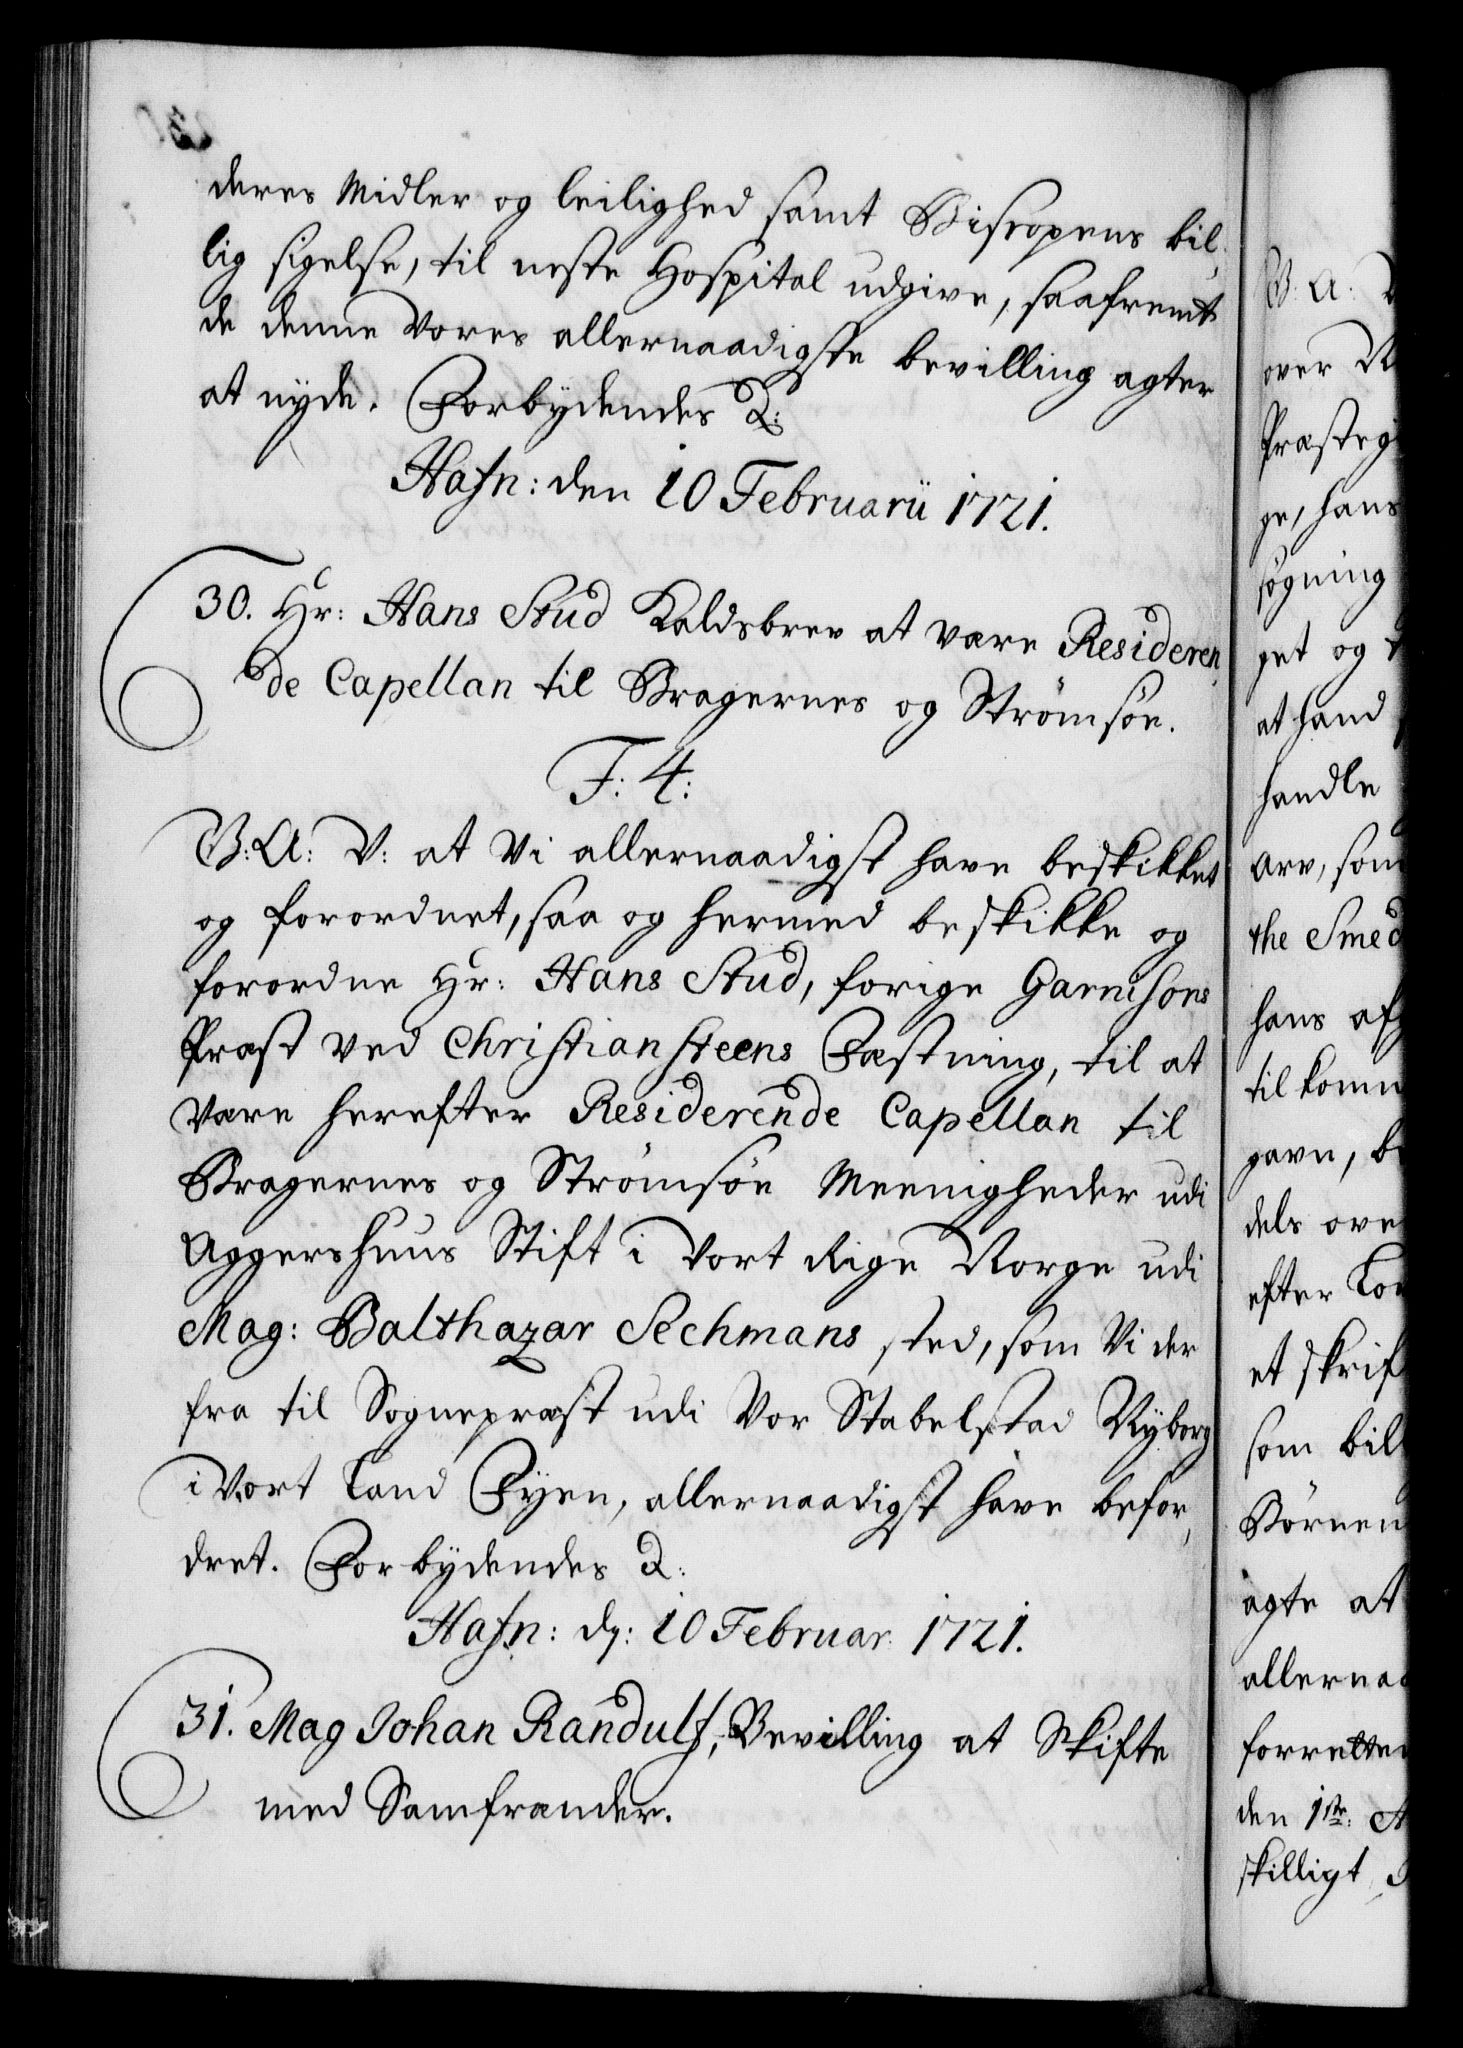 deres Midler og leilighed samt Biscopens bil,
lig sigelse, til neste Hospital udgive, saafremt
de denne Vores allernaadigste bevilling agter
at nyde. Forbydendes &:
Hafn: den 10 Februarii 1721.
30. Hr: Hans Stud Kaldsbrev at være Resideren,
de Capellan til Bragernes og Strømsøe.
F: 4:
G: A: V: at Vi allernaadigst have beskikket
og forordnet, saa og hermed beskikke og
forordne Hr: Hans Stud, forige Garnisons
Præst ved Christiansteens Fæstning, til at
være herefter Residerende Capellan til
Bragernes og Strømsøe Meenigheder udi
Aggershuus Stift i Vort Rige Norge udi
Mag: Balthazar Sechmans sted, som Vi der
fra til Sognepræst udi Vor Stabelstad Nyborg
i Vort Land Fyen, allernaadigst have befor,
dret. Forbydendes &:
Hafn: d: 10 Februar: 1721.
31. Mag Johan Randulf, Bevilling at Skifte
med Samfrænder.
G: A:
over
ge, hans
søgning
get og
at hand
handle
Arv, som
the Smed
hans
gavn,
dels
efter
et
som
Børnen
agte at
den 1ste:
skilligt